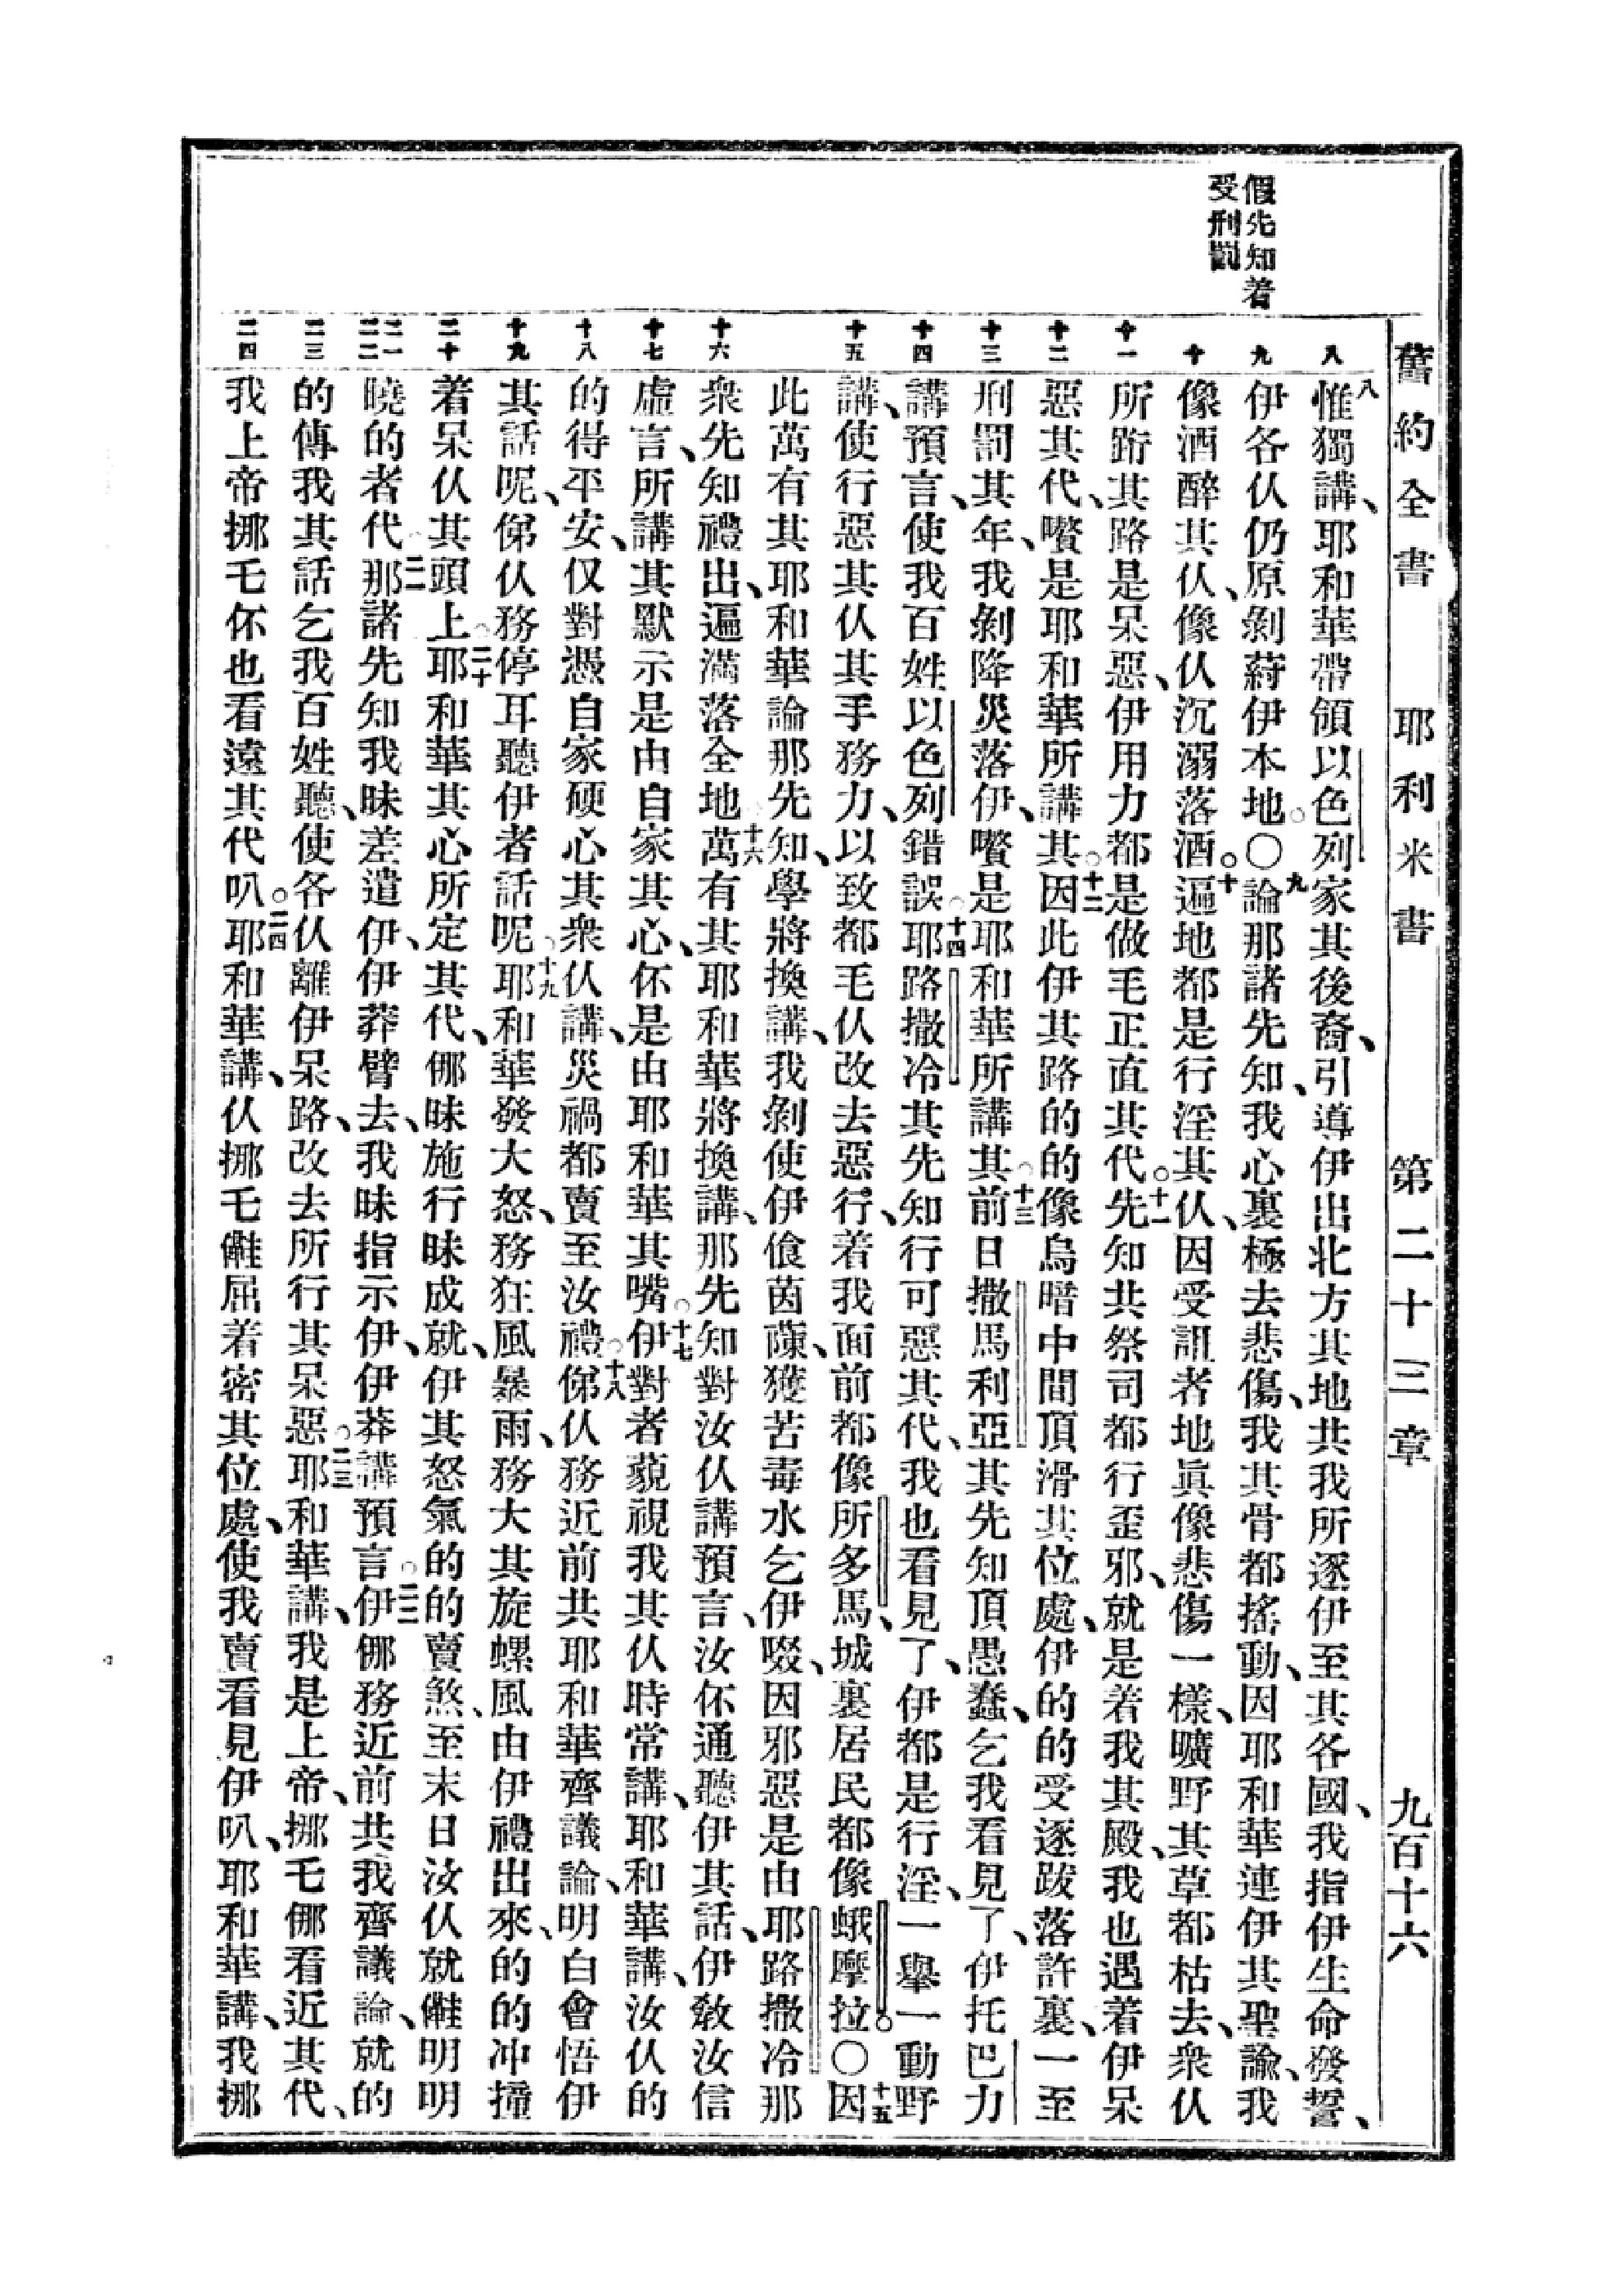 舊約全書 耶利米書 第二十三章 九百十六
假先知着
受刑罰
八 九 十 十一 十二 十三 十四 十五 十六 十七 十八 十九 二十 二一 二二 二三 二四
八惟獨講、耶和華帶領以色列家其後裔、引導伊出北方其地共我所逐伊至其各國、我指伊生命發誓、
伊各仈仍原剝蒔伊本地。〇九論那諸先知、我心裏極去悲傷、我其骨都搖動、因耶和華連伊其聖諭、我
像酒醉其仈、像仈沉溺落酒。十遍地都是行淫其仈、因受詛者地眞像悲傷一樣、曠野其草都枯去、衆仈
所跻其路是呆惡、伊用力都是做毛正直其代。十一先知共祭司都行歪邪、就是着我其殿、我也遇着伊呆
惡其代、嚽是耶和華所講其。十二因此伊其路的的像烏暗中間頂滑其位處、伊的的受逐跋落許裏、一至
刑罰其年、我剝降災落伊、嚽是耶和華所講其。十三前日撒馬利亞其先知頂愚蠢、乞我看見了、伊托巴力
講預言、使我百姓以色列錯誤。十四耶路撒冷其先知行可惡其代、我也看見了、伊都是行淫、一舉一動野
講、使行惡其仈其手務力、以致都毛仈改去惡行、着我面前都像所多馬、城裏居民都像蛾摩拉。〇十五因
此萬有其耶和華論那先知、學將換講、我剝使伊飡茵蔯、獲苦毒水乞伊啜、因邪惡是由耶路撒冷那
衆先知禮出、遍滿落全地。十六萬有其耶和華將換講、那先知對汝仈講預言、汝伓通聽伊其話、伊敎汝信
虛言、所講其默示是由自家其心、伓是由耶和華其嘴。十七伊對者藐視我其仈時常講、耶和華講、汝仈的
的得平安、仅對憑自家硬心其衆仈講、災禍都賣至汝禮。十八俤仈務近前共耶和華齊議論、明白會悟伊
其話呢、俤仈務停耳聽伊者話呢。十九耶和華發大怒、務狂風暴雨、務大其旋螺風由伊禮出來、的的冲撞
着呆仈其頭上。二十耶和華其心所定其代、𠆧昧施行昧成就、伊其怒氣的的賣煞、至末日汝仈就𠆧明明
曉的者代。二一那諸先知我昧差遣伊、伊莽臂去、我昧指示伊、伊莽講預言。二二伊𠆧務近前共我齊議論、就的
的傳我其話乞我百姓聽、使各仈離伊呆路、改去所行其呆惡。二三耶和華講、我是上帝、挪毛𠆧看近其代、
我上帝挪毛伓也看遠其代叭。二四耶和華講、仈挪毛𠆧屈着密其位處、使我賣看見伊叭、耶和華講、我挪